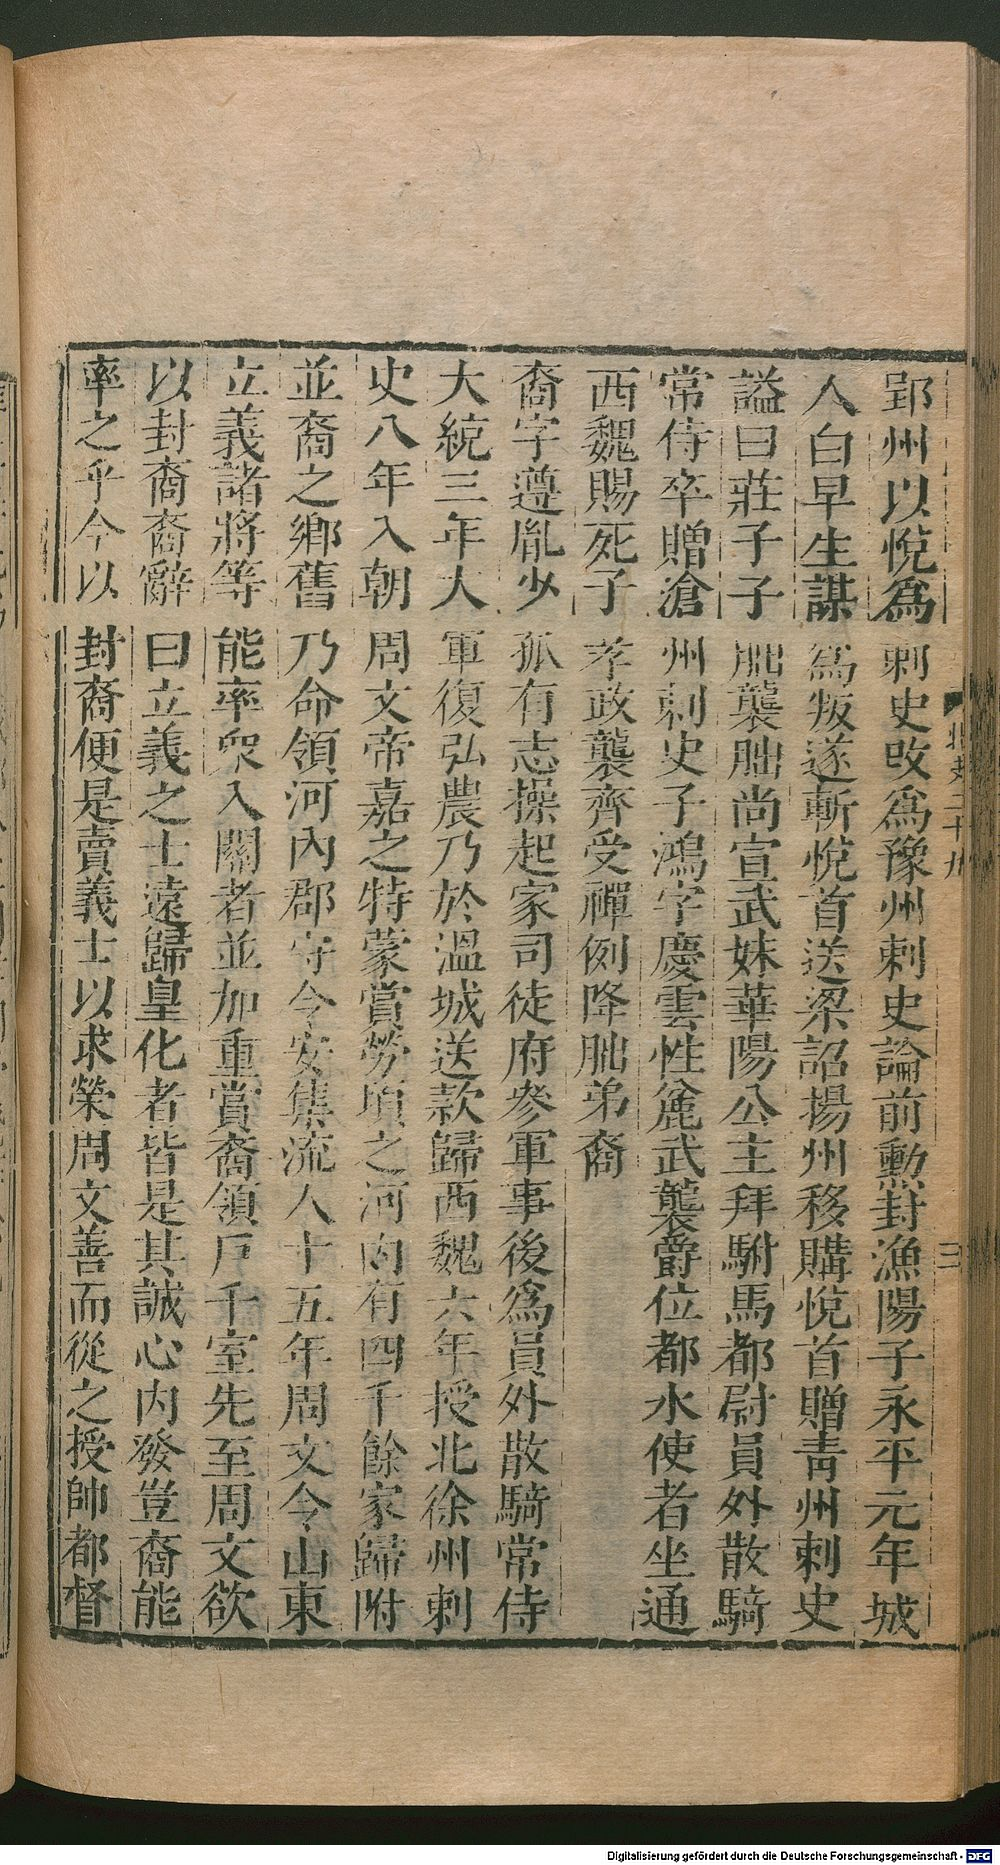 郢州以悅爲刺史改爲豫州刺史論前勲封漁陽子永平元年城
人白早生謀爲叛遂斬悅首送梁詔揚州移購悅首贈青州刺史
謚曰莊子子朏襲朏尚宣武妹華陽公主拜駙馬都尉員外散騎
常侍卒贈滄州刺史子鴻字慶雲性麄武襲爵位都水使者坐通
西魏賜死子孝政襲齊受禪例降朏弟裔
裔字遵胤少孤有志操起家司徒府參軍事後爲員外散騎常侍
大統三年大軍復弘農乃於溫城送款歸西魏六年授北徐州刺
史八年入朝周文帝嘉之特蒙賞勞頃之河內有四千餘家歸附
並裔之鄉舊乃命領河內郡守令安集流人十五年周文令山東
立義諸將等能率衆入關者並加重賞裔領戶千室先至周文欲
以封裔裔辭曰立義之士遠歸皇化者皆是其誠心內發豈裔能
率之乎今以封裔便是賣義士以求榮周文善而從之授帥都督
北史二十九
三
Digitalisierung gefördert durch die Deutsche Forschungsgemeinschaft - DFG